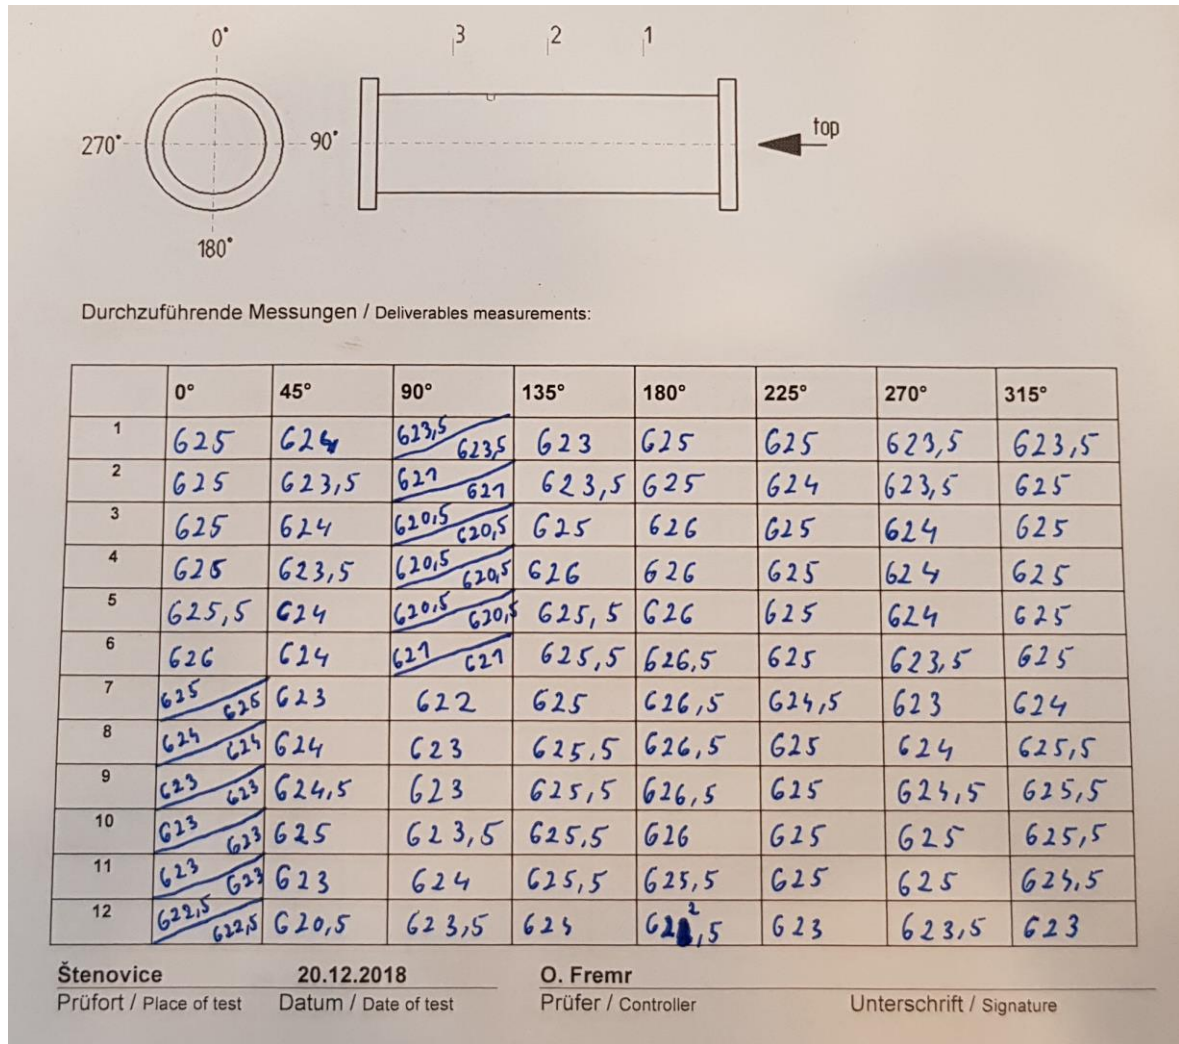 0°
3 2 1
270° 90° top
180°
Durchzuführende Messungen / Deliverables measurements:
0° 45° 90° 135° 180° 225° 270° 315°
1 625 624 623,5 623,5 623 625 625 623,5 623,5
2 625 623,5 621 621 623,5 625 624 623,5 625
3 625 624 620,5 620,5 625 626 625 624 625
4 625 623,5 620,5 620,5 626 626 625 624 625
5 625,5 624 620,5 620,5 625,5 626 625 624 625
6 626 624 621 621 625,5 626,5 625 623,5 625
7 625 625 623 622 625 626,5 624,5 623 624
8 624 624 624 623 625,5 626,5 625 624 625,5
9 623 623 624,5 623 625,5 626,5 625 624,5 625,5
10 623 623 625 623,5 625,5 626 625 625 625,5
11 623 623 623 624 625,5 625,5 625 625 624,5
12 622,5 622,5 620,5 623,5 624 622,5 623 623,5 623
Štenovice 20.12.2018 O. Fremr
Prüfort / Place of test Datum / Date of test Prüfer / Controller Unterschrift / Signature